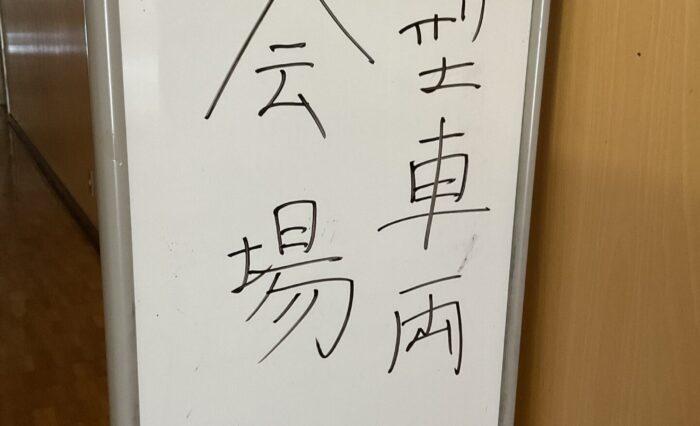 型車両
会場